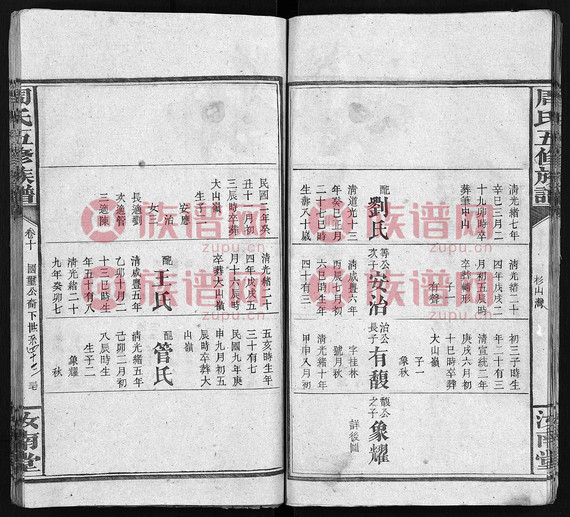 周氏五修族譜
杉山灣
汝南堂
清光緒七年
辛巳三月二
十九卯時卒
葬筆中山
配劉氏
清道光十三
年癸巳正月
二十七巳時
生壽八十歲
民國二年癸
丑十一月初
三辰時卒葬
大山嶺
生子二
安應
治
女三
長適劉
次適管
三適陳
清光緒二十
四年戊戌五
月初五辰時
卒葬補形
子一
有聲
等公次子安治
清咸豐六年
丙辰七月初
四十有三
清光緒二十
四年戊戌五
月十六辰時
卒葬大山嶺
配王氏
清咸豐五年
乙卯十月二
十三巳時生
年五十有八
清光緒二十
九年癸卯七
初三子時生
年二十有三
清宣統二年
庚戌六月初
十巳時卒葬
大山嶺
子一
象秋
治公長子有馥
字桂林
號月秋
清光緒十年
甲申八月初
五亥時生年
三十有七
民國九年庚
申九月初五
辰時卒葬大
山嶺
配管氏
清光緒五年
己卯三月初
八辰時生
生子二
象耀
秋
馥公之子象耀
詳後圖
周氏五修族譜
卷十
國璽公裔下世系
汝南堂
族谱网
zupu.cn
族谱网
zupu.cn